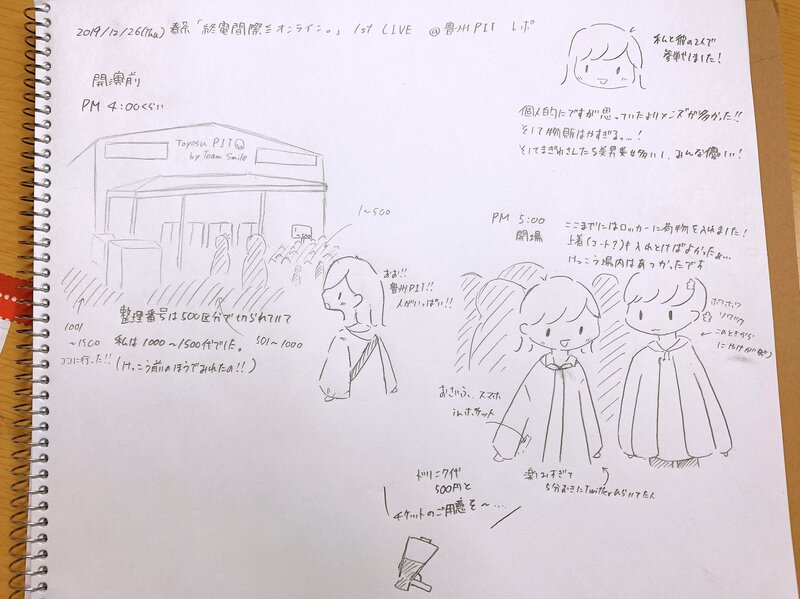 2019/12/26(Thu) 春茶「終電間際≡オンライン。」 1st LIVE @豊洲PIT レポ
私と彼の2人で
参戦しました!
開演前
PM 4:00くらい
個人的にですが思っていたよりメンズが多かった!!
そして物販はやすぎる…!
そして
さんたち美男美女多いし、みんな優しい!
Toyosu PIT
by Team Smile
1~500
おお!!
豊洲PIT!!
人がいっぱい!!
PM 5:00
開場
ここまでにはロッカーに荷物を入れました!
上着(コート?)も入れとけばよかったぁ…
けっこう場内はあつかったです
整理番号は500区分で切られていて
1001
~1500
私は1000~1500代でした。
501~1000
ココに行った!!
(けっこう前のほうでみれたの!!)
ホワホワ
ソワソワ
このときから
おさいふ、スマホ
inポケット
楽しみすぎて
5分おきにTwitterひらいてた人
ドリンク代
500円と
チケットのご用意を~……